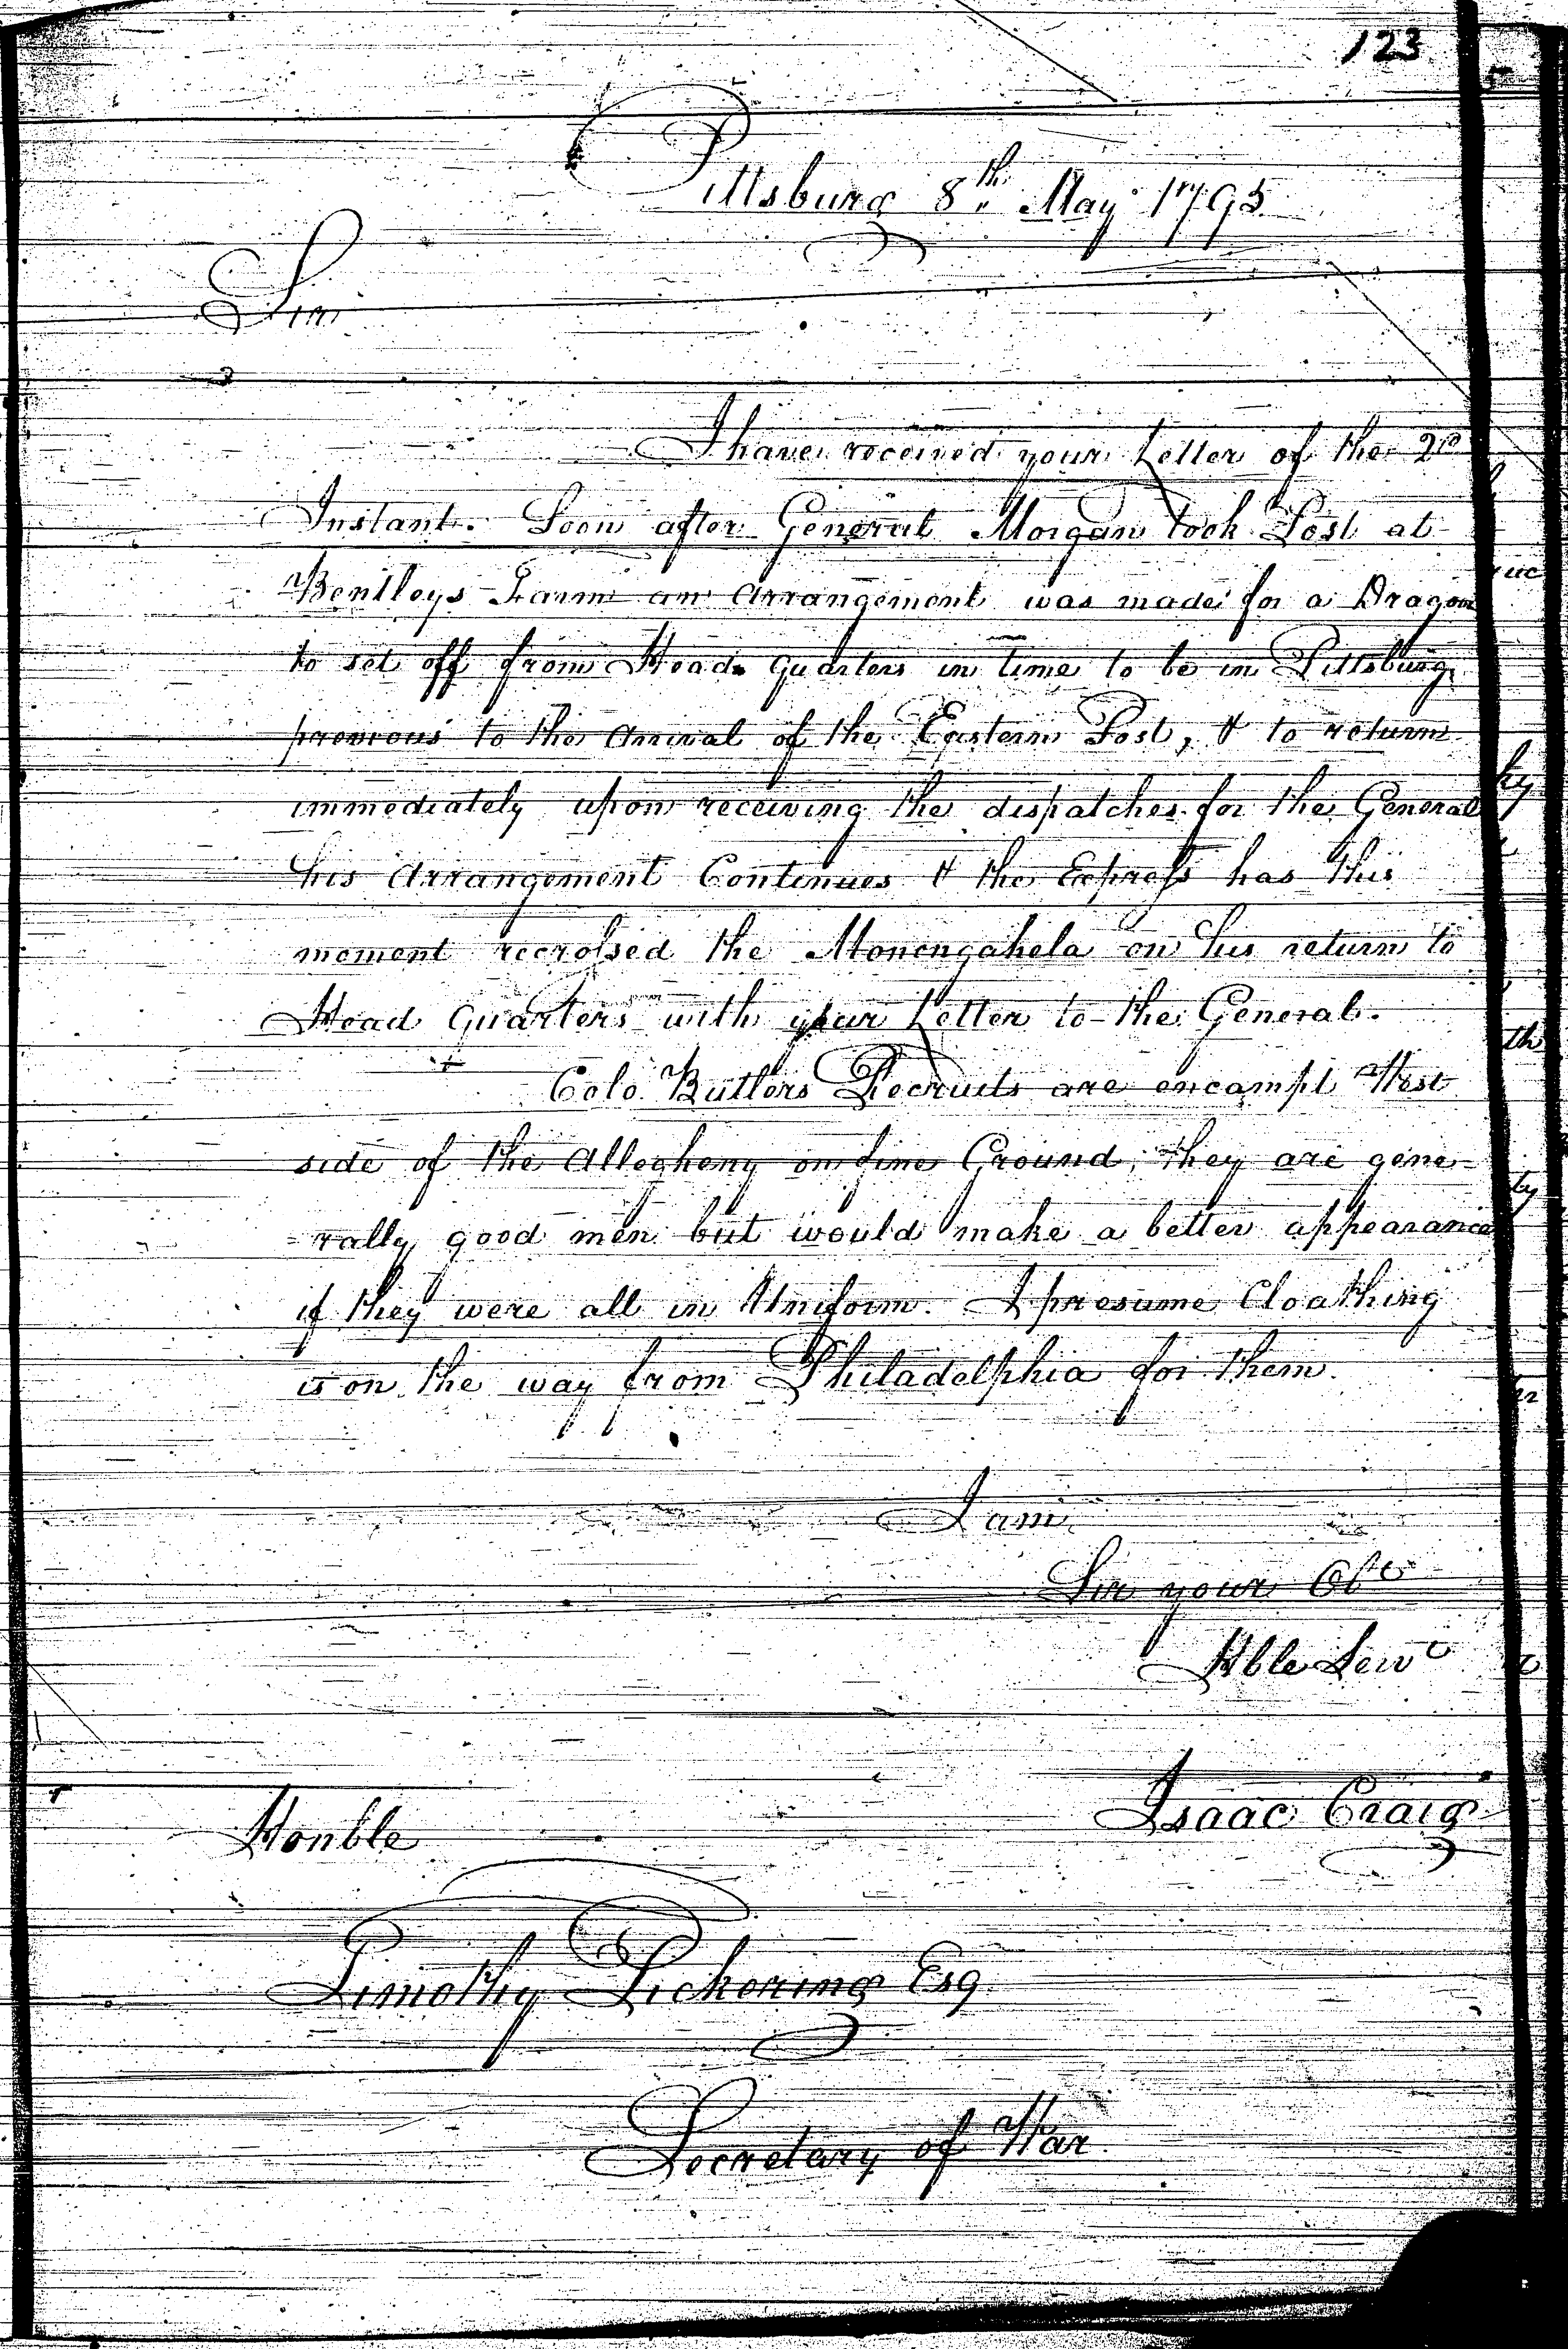 123
Pittsburg 8th May 1795
Sir
I have received your Letter of the 2d
Instant. Soon after General Morgan took Post at
Bentleys Farm an Arrangement was made for a Dragoon
to set off from Head Quarters in time to be in Pittsburg
previous to the Arrival of the Eastern Post, & to return
immediately upon receiving the dispatches for the General
this Arrangement Continues & the Express has this
moment recrossed the Monongahela on his return to
Head Quarters with your Letter to the General.
Colo. Butlers Recruits are encampt West
side of the Allegheny on fine Ground; they are gene-
-rally good men but would make a better appearance
if they were all in Uniform. I presume Cloathing
is on the way from Philadelphia for them.
I am
Sir your Obt
Hble Servt
Isaac Craig
Honble
Timothy Pickering Esq
Secretary of War